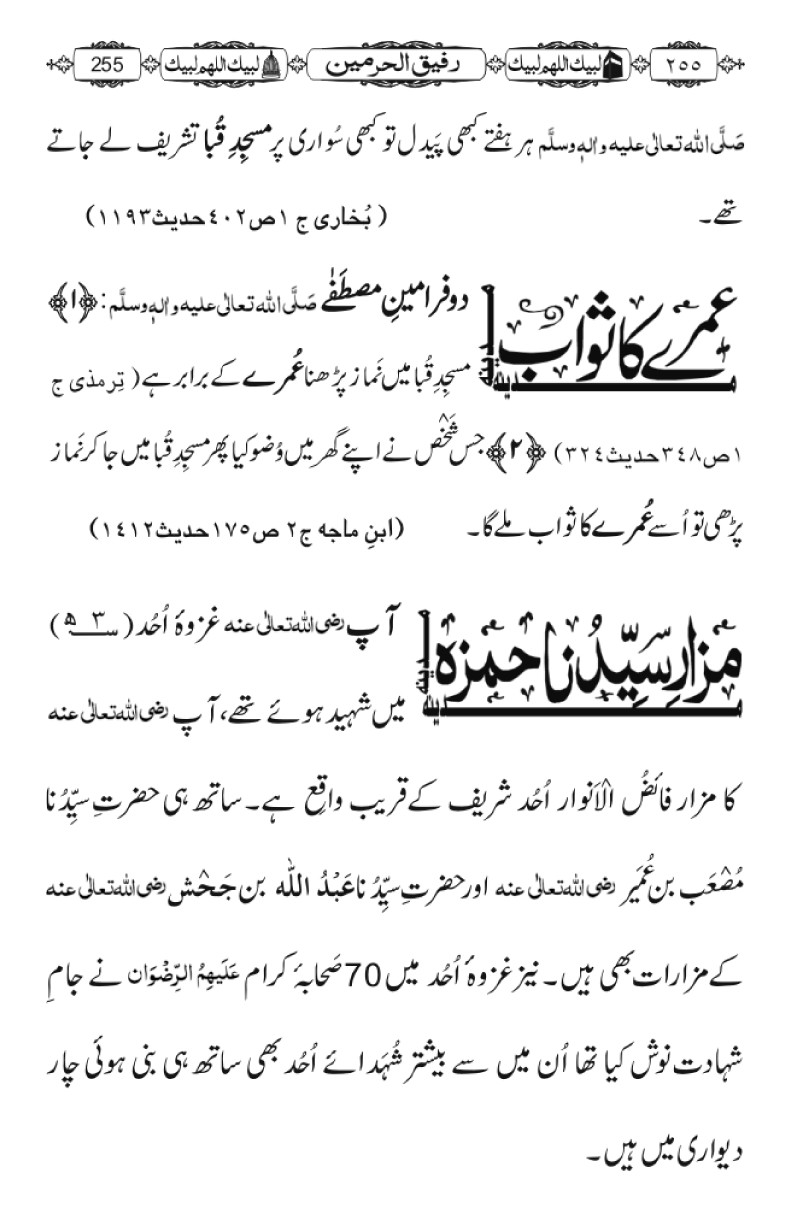 ٢٥٥ لبیك اللهم لبیك رفیق الحرمین لبیك اللهم لبیك 255
صَلَّی اللہ تعالٰی علیہ واٰلہٖ وسلَّم ہر ہفتے کبھی پَیدل تو کبھی سُواری پر مسجِدِ قُبا تشریف لے جاتے
تھے۔ (بُخاری ج ۱ ص ٤٠٢ حدیث ۱۱۹۳)
عمرے کا ثواب
مدینہ مدینہ
دو فرامینِ مصطَفٰے صَلَّی اللہ تعالٰی علیہ واٰلہٖ وسلَّم: ﴿۱﴾
مسجِدِ قُبا میں نَماز پڑھنا عُمرے کے برابر ہے (تِرمذی ج
۱ ص ۳٤۸ حدیث ۳۲٤) ﴿۲﴾ جس شَخْص نے اپنے گھر میں وُضو کیا پھر مسجِدِ قُبا میں جا کر نَماز
پڑھی تو اُسے عُمرے کا ثواب ملے گا۔ (ابنِ ماجه ج۲ ص ۱۷٥ حدیث ۱٤۱۲)
مزارِ سیِّدُنا حمزہ
مدینہ مدینہ
آپ رضی اللہ تعالٰی عنہ غزوۂ اُحُد (سـ ۳ ـھ)
میں شہید ہوئے تھے، آپ رضی اللہ تعالٰی عنہ
کا مزار فائضُ الْاَنوار اُحُد شریف کے قریب واقِع ہے۔ ساتھ ہی حضرتِ سیِّدُنا
مُصْعَب بن عُمَیر رضی اللہ تعالٰی عنہ اور حضرتِ سیِّدُنا عَبْدُ اللّٰہ بن جَحْش رضی اللہ تعالٰی عنہ
کے مزارات بھی ہیں۔ نیز غزوۂ اُحُد میں 70 صَحابۂ کرام عَلَیْہِمُ الرِّضْوَان نے جامِ
شہادت نوش کیا تھا اُن میں سے بیشتر شُہَدائے اُحُد بھی ساتھ ہی بنی ہوئی چار
دیواری میں ہیں۔